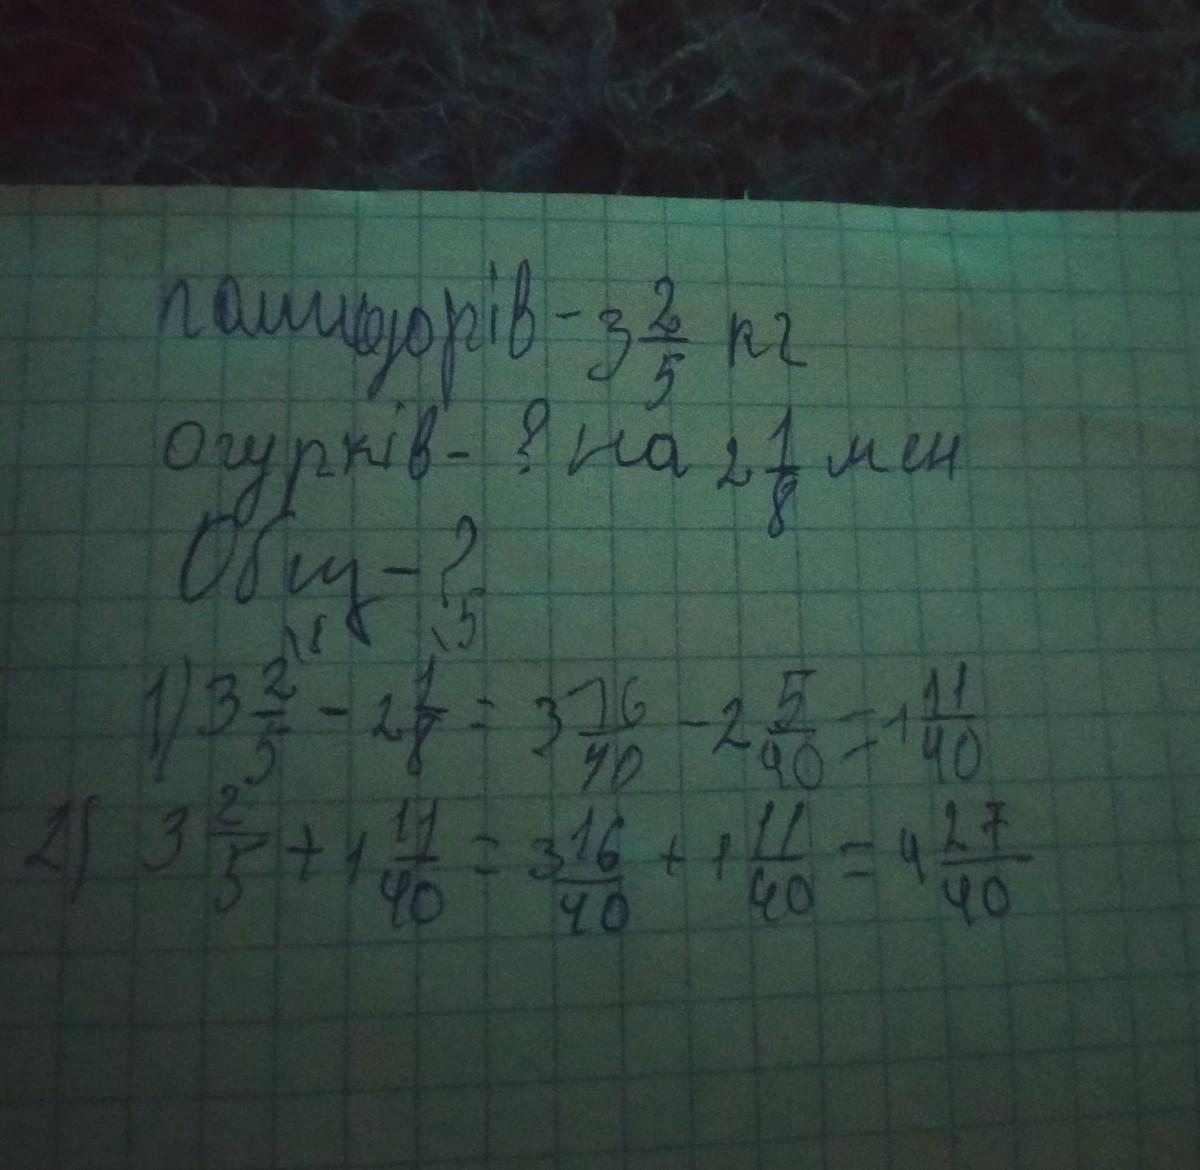 помидорів - 3 2/5 кг
огурків - ? на 2 1/8 мен
Общ - ?
\8 \5
1) 3 2/5 - 2 1/8 = 3 16/40 - 2 5/40 = 1 11/40
2) 3 2/5 + 1 11/40 = 3 16/40 + 1 11/40 = 4 27/40